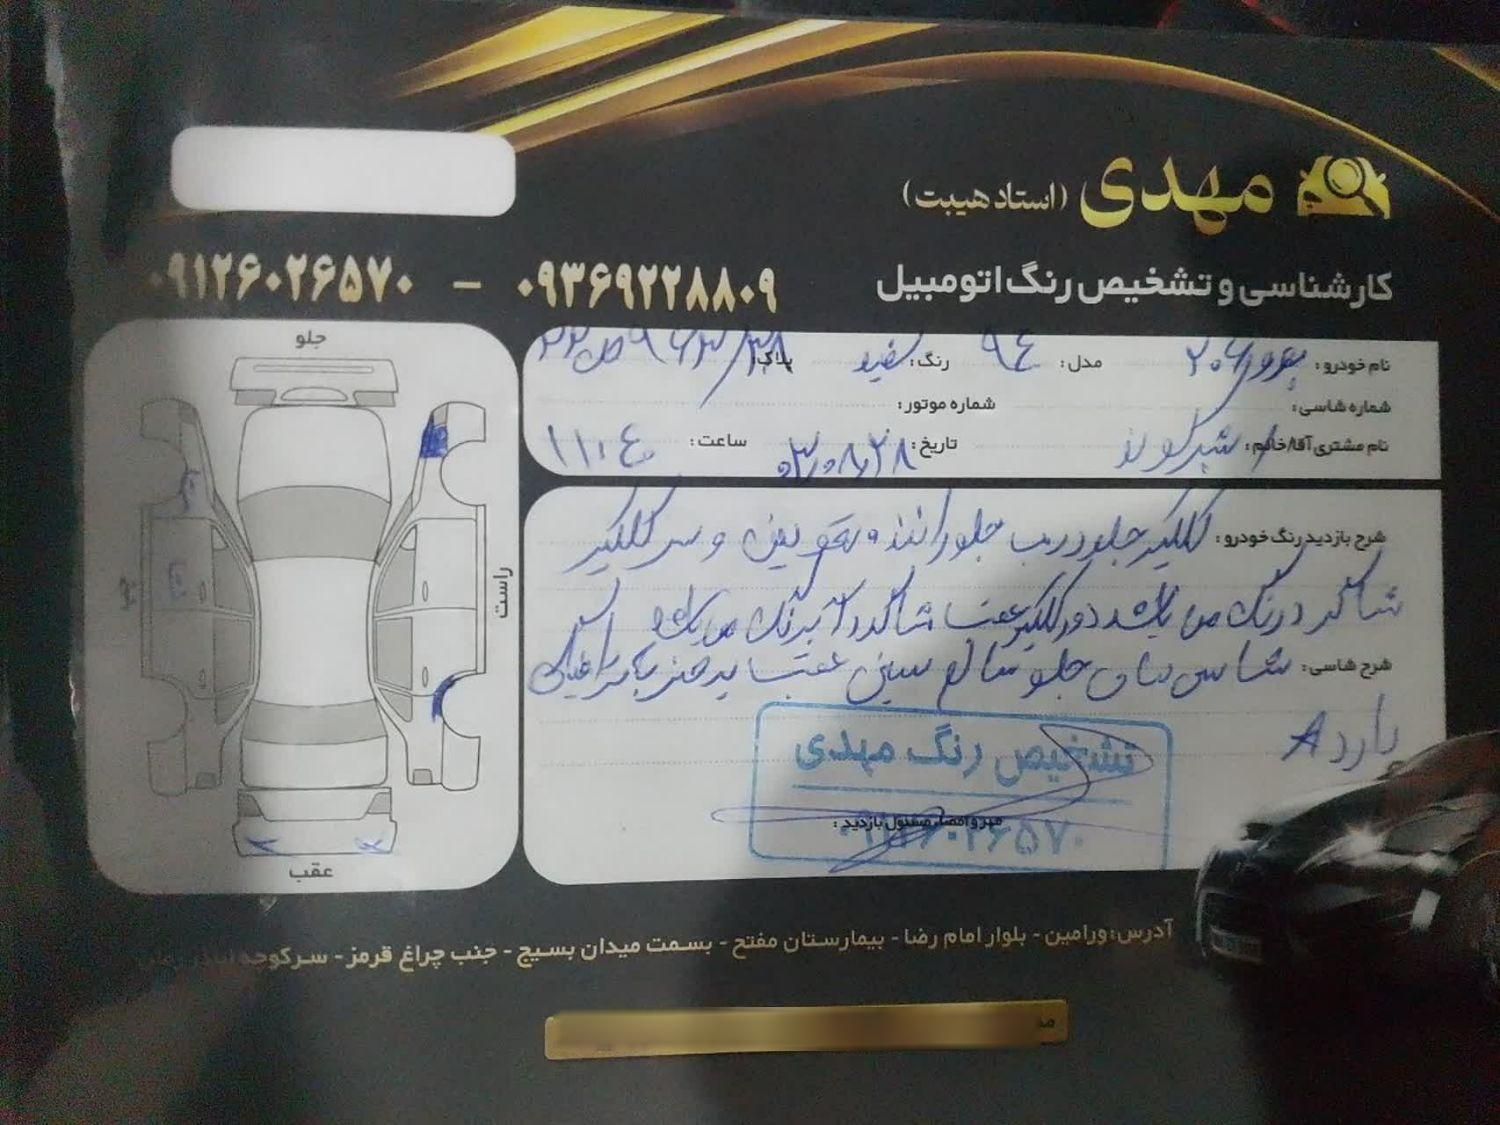 مهدی (استاد هیبت)
کارشناسی و تشخیص رنگ اتومبیل
۰۹۳۶۹۲۲۸۸۰۹ - ۰۹۱۲۶۰۲۶۵۷۰
نام خودرو: پژو ۲۰۶ مدل: ۹۴ رنگ: سفید پلاک:
شماره شاسی: شماره موتور:
نام مشتری آقا/خانم: تاریخ: ۰۳،۰۸،۲۸ ساعت: ۱۱:۰۴
شرح بازدید رنگ خودرو: گلگیر جلو درب جلو راننده تعویض و سر گلگیر
شاگرد رنگ می باشد دور گلگیر عقب شاگرد رنگ می باشد
شرح شاسی: شاسی های جلو سالم سینی عقب
دارد
تشخیص رنگ مهدی
مهر و امضاء مسئول بازدید:
۰۹۱۲۶۰۲۶۵۷۰
جلو
راست
چپ
عقب
آدرس: ورامین - بلوار امام رضا - بیمارستان مفتح - بسمت میدان بسیج - جنب چراغ قرمز - سرکوچه